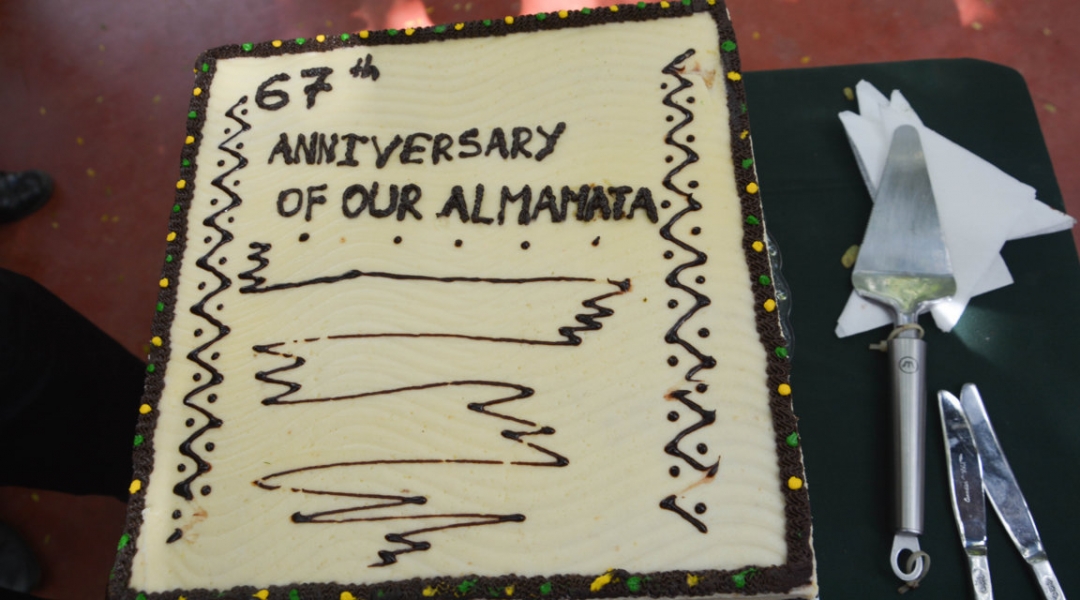 67th
ANNIVERSARY
OF OUR ALMAMATA